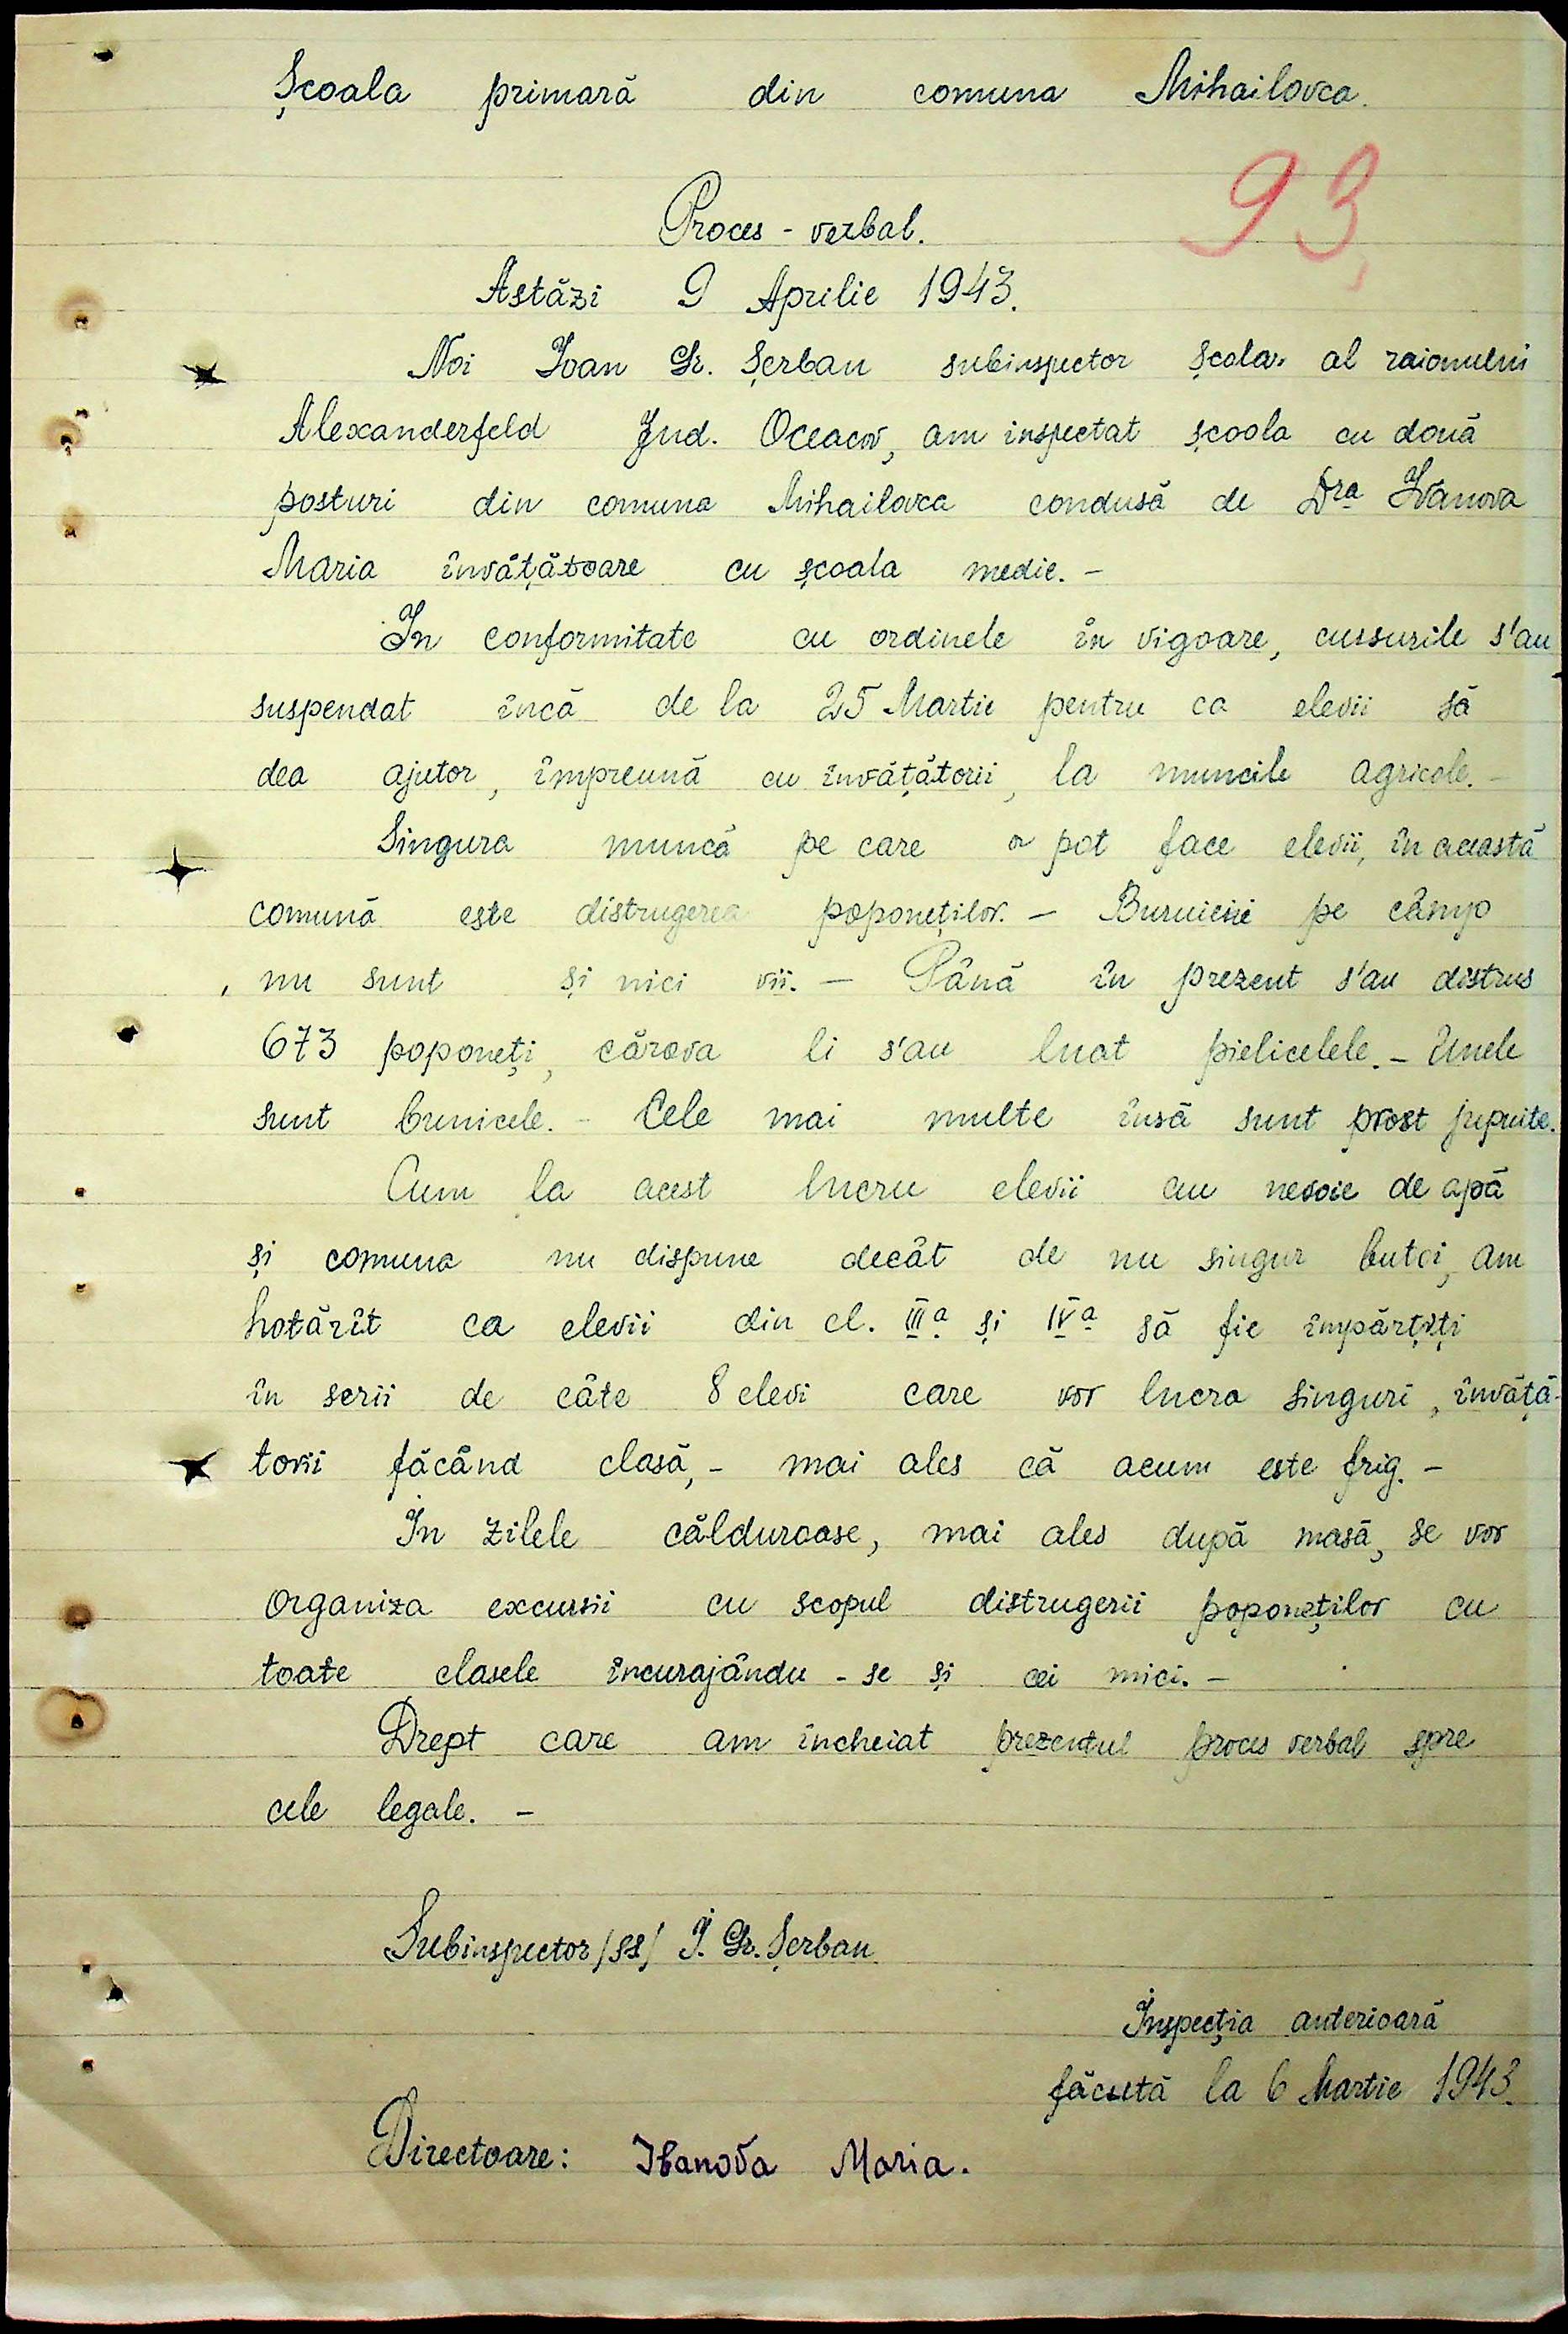 Școala primară din comuna Mihailovca.
93
Proces - verbal.
Astăzi 9 Aprilie 1943.
Noi Ioan Gr. Șerban subinspector școlar al raionului
Alexanderfeld Jud. Oceacov, am inspectat școala cu două
posturi din comuna Mihailovca condusă de Dra Ivanova
Maria învățătoare cu școala medie. -
In conformitate cu ordinele în vigoare, cursurile s'au
suspendat încă de la 25 Martie pentru ca elevii să
dea ajutor, împreună cu învățătorii, la muncile agricole. -
Singura muncă pe care o pot face elevii, în această
comună este distrugerea poponeților. - Buruieni pe câmp
nu sunt și nici vii. - Până în prezent s'au distrus
673 poponeți, cărora li s'au luat pielicelele. - Unele
sunt bunicele. - Cele mai multe însă sunt prost jupuite.
Cum la acest lucru elevii au nevoie de apă
și comuna nu dispune decât de un singur butoi, am
hotărît ca elevii din cl. IIIa și IVa să fie împărțiți
în serii de câte 8 elevi care vor lucra singuri, învăță-
torii făcând clasă, - mai ales că acum este frig. -
In zilele călduroase, mai ales după masă, se vor
organiza excursii cu scopul distrugerii poponeților cu
toate clasele încurajându - se și cei mici. -
Drept care am încheiat prezentul proces verbal spre
cele legale. -
Subinspector /ss/ I. Gr. Șerban
Inspecția anterioară
făcută la 6 Martie 1943.
Directoare: Ivanova Maria.